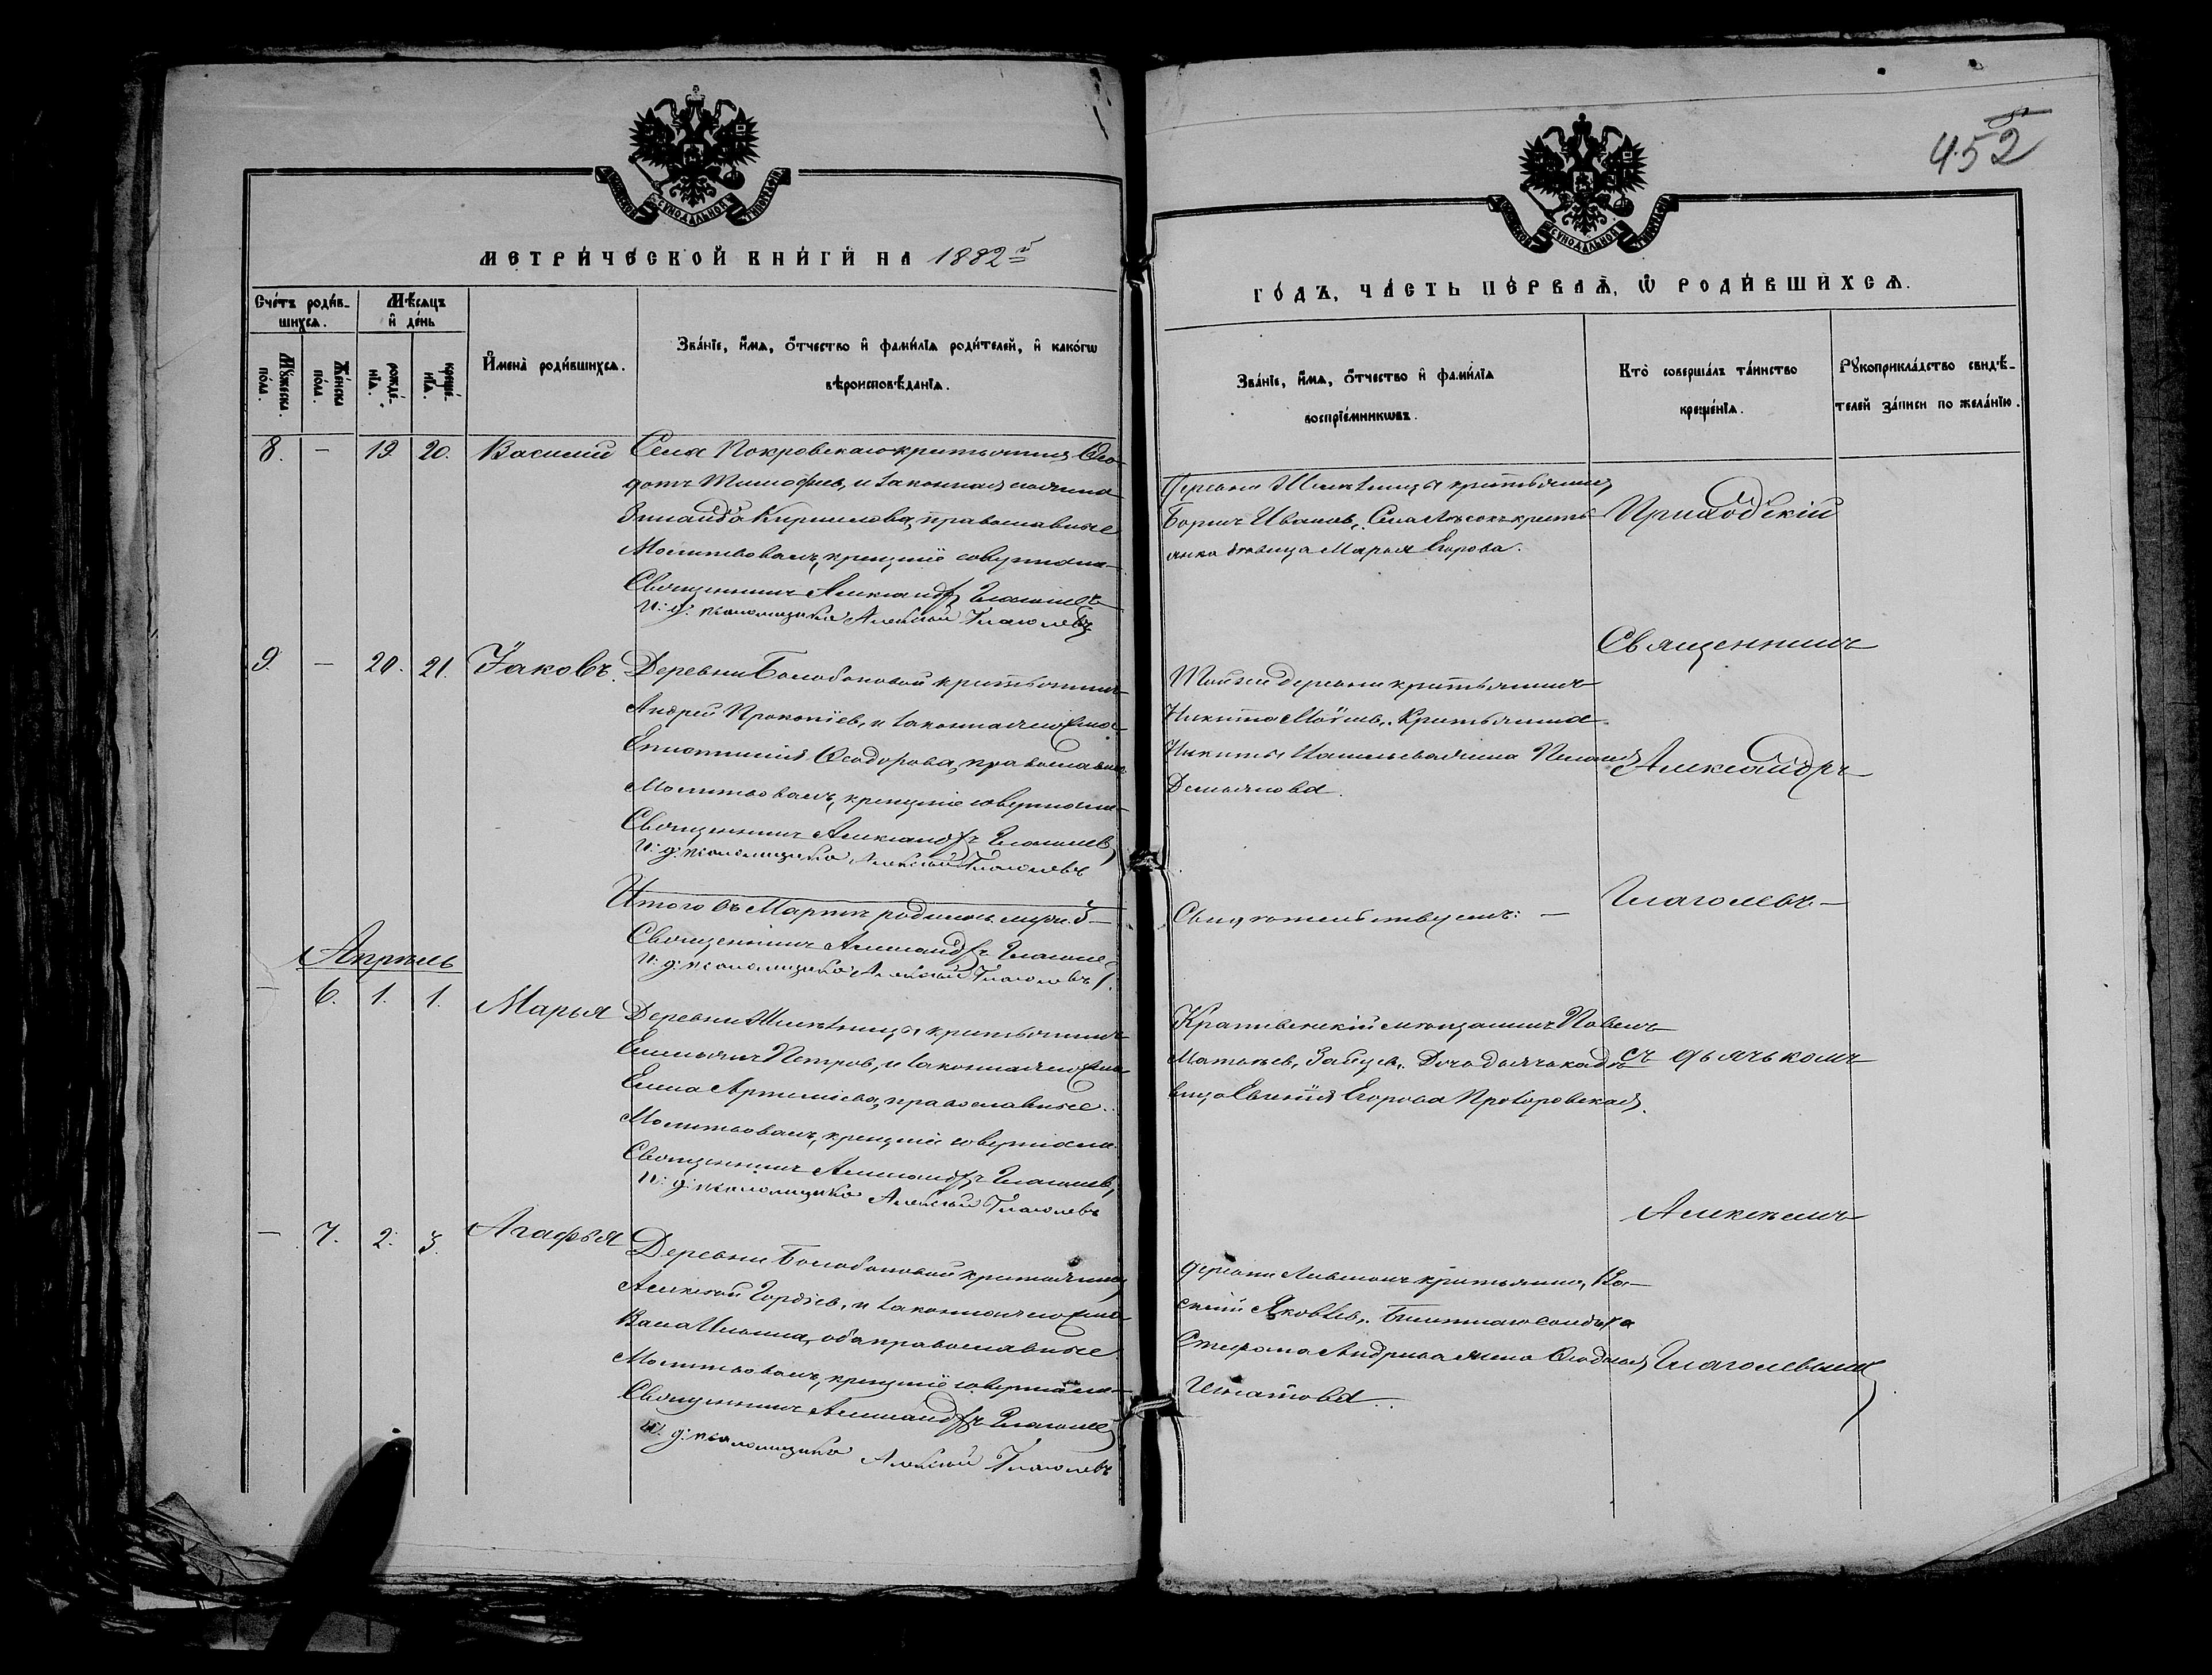 452
МЕТРИ́ЧЕСКОЙ КНИ́ГИ НА 1882 й
ГО́ДЪ, ЧА́СТЬ ПЕ́РВАѦ, Ѿ РОДИ́ВШИХСѦ.
Сче́тъ роди́в-
шихсѧ.
Мѣ́сѧцъ
и҆ де́нь
Мꙋ́жеска по́ла.
Же́нска по́ла.
рожде́-
нїѧ.
креще́-
нїѧ.
И҆мена̀ роди́вшихсѧ.
Зва́нїе, и҆́мѧ, ѻ҆́тчество и҆ фами́лїѧ роди́телей, и҆ како́гѡ
вѣроисповѣ́данїѧ.
Зва́нїе, и҆́мѧ, ѻ҆́тчество и҆ фами́лїѧ
воспрїе́мникѡвъ.
Кто̀ соверша́лъ та́инство
креще́нїѧ.
Рꙋкоприкла́дство свидѣ́-
телей за́писи по жела́нїю.
8. — 19. 20. Василій
Села Покровскаго крестьянинъ Ѳео-
дотъ Тимофеев, и законная его жена
Кирилова, православные
Молитвовалъ, крещеніе совершалъ
Священникъ Александръ Глаголев
И: д: псаломщика Алексѣй Глаголевъ
Деревни крестьянинъ
Борисъ Иванов, Села кресть-
янка дѣвица Марья Егорова.
Приходскій
Священникъ
Александръ
Глаголевъ —
съ дьячькомъ
Алексѣемъ
Глаголевымъ
9. — 20. 21. Іаковъ.
Деревни Болобоновой крестьянинъ
Андрей Прокопіев, и законная его жена
Ѳеодорова, православные
Молитвовалъ, крещеніе совершалъ
Священникъ Александръ Глаголев
И: д: псаломщика Алексѣй Глаголевъ
Той же деревни крестьянинъ
Никита Моѵсеев, Крестьянина
Никиты жена Пелагея
Демьянова.
Итого въ Мартѣ родилось муж. 5
Священникъ Александръ Глаголев
И: д: псаломщика Алексѣй Глаголевъ
Свидѣтельствуемъ: —
Апрѣль
— 6. 1. 1. Марья
Деревни крестьянинъ
Емельянъ Петров, и законная его жена
Елена Артемьева, православные.
Молитвовалъ, крещеніе совершалъ
Священникъ Александръ Глаголев
И: д: псаломщика Алексѣй Глаголевъ
Крапивенскій мещанинъ Павелъ
Матвѣев, Зайцев. Дочь дьячка дѣ-
вица Евгенія Егорова Прозоровская.
— 7. 2. 3. Агафья
Деревни Болобоновой крестьянинъ
Алексѣй Гордѣев, и законная его жена
Васса Ильина, оба православные
Молитвовалъ, крещеніе совершалъ
Священникъ Александръ Глаголев
И: д: псаломщика Алексѣй Глаголевъ
деревни крестьянинъ, Ва-
силій Яковлев. Билетнаго солдата
Стефана Андреева жена Ѳеодосья
Игнатова.